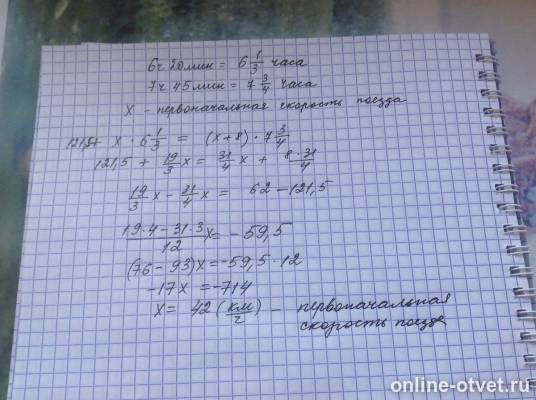 6ч 20мин = 6 1/3 часа
7ч 45мин = 7 3/4 часа
x - первоначальная скорость поезда
121,5+ x · 6 1/3 = (x+8) · 7 3/4
121,5 + 19/3 x = 31/4 x + 8·31/4
19/3 x - 31/4 x = 62 - 121,5
(19·4 - 31·3)/12 x = - 59,5
(76 - 93)x = -59,5 · 12
-17x = -714
x = 42 (км/ч) - первоначальная
скорость поезда
online-otvet.ru